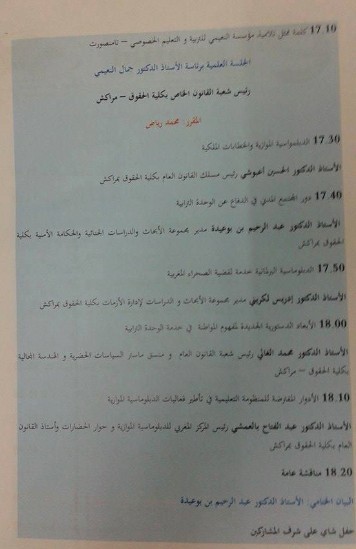 17.10 كلمة ممثل تلاميذ مؤسسة النعيمي للتربية و التعليم الخصوصي – تامنصورت
الجلسة العلمية برئاسة الأستاذ الدكتور جمال النعيمي
رئيس شعبة القانون الخاص بكلية الحقوق – مراكش
المقرر: محمد رياض
17.30 الدبلوماسية الموازية والخطابات الملكية
الأستاذ الدكتور الحسين اعبوشي رئيس مسلك القانون العام بكلية الحقوق بمراكش
17.40 دور المجتمع المدني في الدفاع عن الوحدة الترابية
الأستاذ الدكتور عبد الرحيم بن بوعيدة مدير مجموعة الأبحاث والدراسات الجنائية والحكامة الأمنية بكلية
الحقوق بمراكش
17.50 الدبلوماسية البرلمانية خدمة لقضية الصحراء المغربية
الأستاذ الدكتور إدريس لكريني مدير مجموعة الأبحاث و الدراسات لإدارة الأزمات بكلية الحقوق بمراكش
18.00 الأبعاد الدستورية الجديدة لمفهوم المواطنة في خدمة الوحدة الترابية
الأستاذ الدكتور محمد الغالي رئيس شعبة القانون العام و منسق ماستر السياسات الحضرية و الهندسة المجالية
بكلية الحقوق – مراكش
18.10 الأدوار المفترضة للمنظومة التعليمية في تأطير فعاليات الدبلوماسية الموازية
الأستاذ الدكتور عبد الفتاح بالعمشي رئيس المركز المغربي للدبلوماسية الموازية و حوار الحضارات وأستاذ القانون
العام بكلية الحقوق بمراكش
18.20 مناقشة عامة
البيان الختامي: الأستاذ الدكتور عبد الرحيم بن بوعيدة
حفل شاي على شرف المشاركين